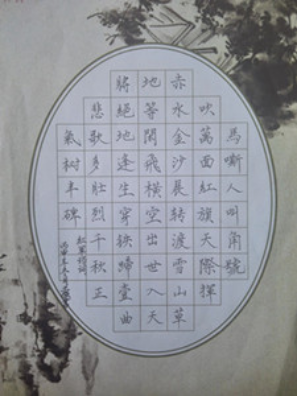 馬嘶人叫角號
吹萬面紅旗天際揮
赤水金沙晨转渡雪山草
地等閑飛橫空出世入天
將絕地逢生穿鉄蹄壹曲
悲歌多壯烈千秋正
氣树丰碑